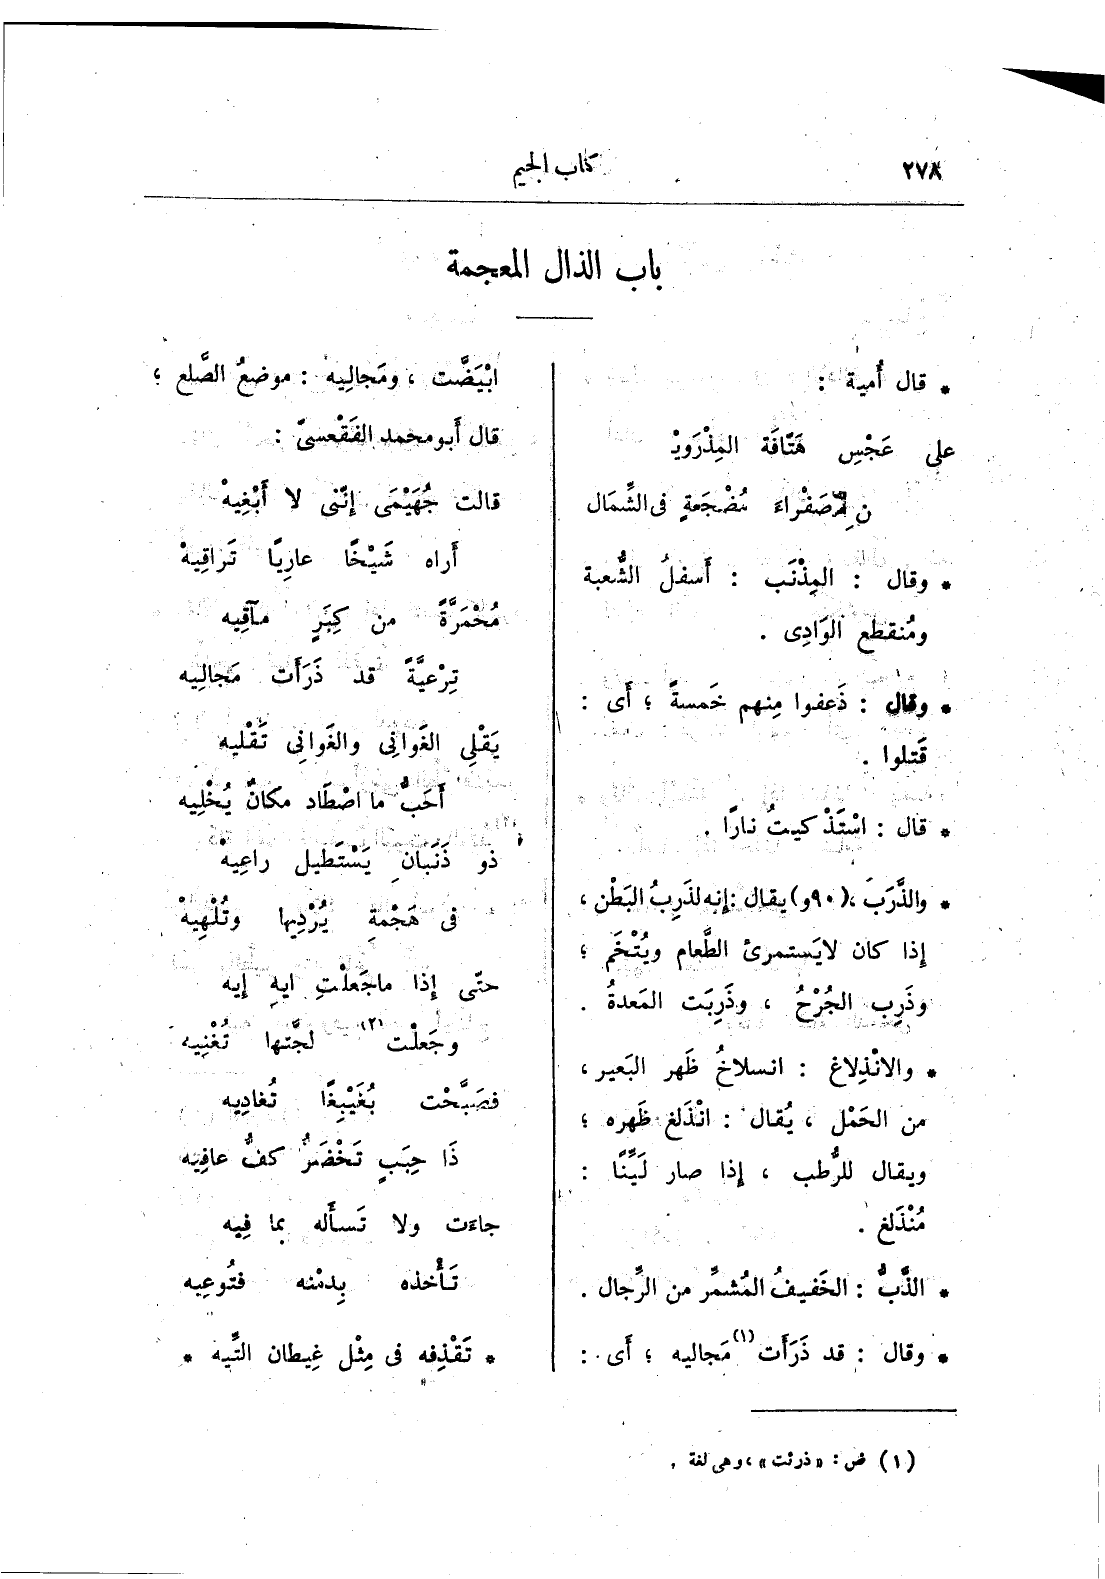 ٢٧٨
كتاب الجيم
باب الذال المعجمة
* قال أُمية :
على عَجْسِ هَتَّافَة المِذْرَويْـ
صَفْراءَ مُضْجَعةٍ فى الشِّمَال
* وقال : المِذْنَب : أَسفلُ الشُّعبة
ومُنقطع الوَادِى .
* وقال : ذَعفوا مِنهم خَمسةً ؛ أَى :
قَتلوا .
* قال : اسْتَذْكيتُ نارًا .
* والذَّرَبَ ،(٩٠و) يقال :إنه لذَرِبُ البَطْن ،
إذا كان لايَستمرئ الطَّعام ويُتْخَم ؛
وذَرِب الجُرْحُ ، وذَرِبَت المَعدةُ .
* والانْذِلاغ : انسلاخُ ظَهر البَعير ،
من الحَمْل ، يُقال : انْذَلغ ظَهره ؛
ويقال للرُّطب ، إذا صار لَيِّنًا :
مُنْذَلغ .
* الذَّبُّ : الخَفيفُ المُشمِّر من الرِّجال .
* وقال : قد ذَرَأَت (١) مَجاليه ؛ أَى :
ابْيَضَّت ، ومَجالِيه : موضعُ الصَّلع ؛
قال أَبو محمد الفَقْعسىّ :
قالت جُهَيْمَى إنَّنى لا أَبْغِيهْ
أَراه شَيْخًا عارِيًا تَراقِيهْ
مُحْمَرَّةً من كِبَرٍ مآقِيه
تِرْعيَّةً قد ذَرَأَت مَجالِيه
يَقْلِى الغَوانِى والغَوانِى تَقْليه
أَحَبُّ ما اصْطَاد مكانٌ يُخْلِيه
ذو ذَنَبَانِ يَسْتَطيل راعِيهْ
فى هَجْمةٍ يُرْدِيها وتُلْهِيهْ
حتّى إذا ماجَعلْتِ ايهِ إيه
وجَعلْت (٢) لجَّتها تُغْنِيه
فصَبَّحْت بُغَيْبِغًا تُغادِيه
ذَا حِبَبٍ تَخْضَرُّ كفُّ عافِيه
جاءَت ولا تَسأَله بما فِيه
تَأْخذه بِدمْنه فتُوعِيه
* تَقْذِفه فى مِثْل غِيطان التِّيه *
(١) ض : «ذرئت» ، وهى لغة .